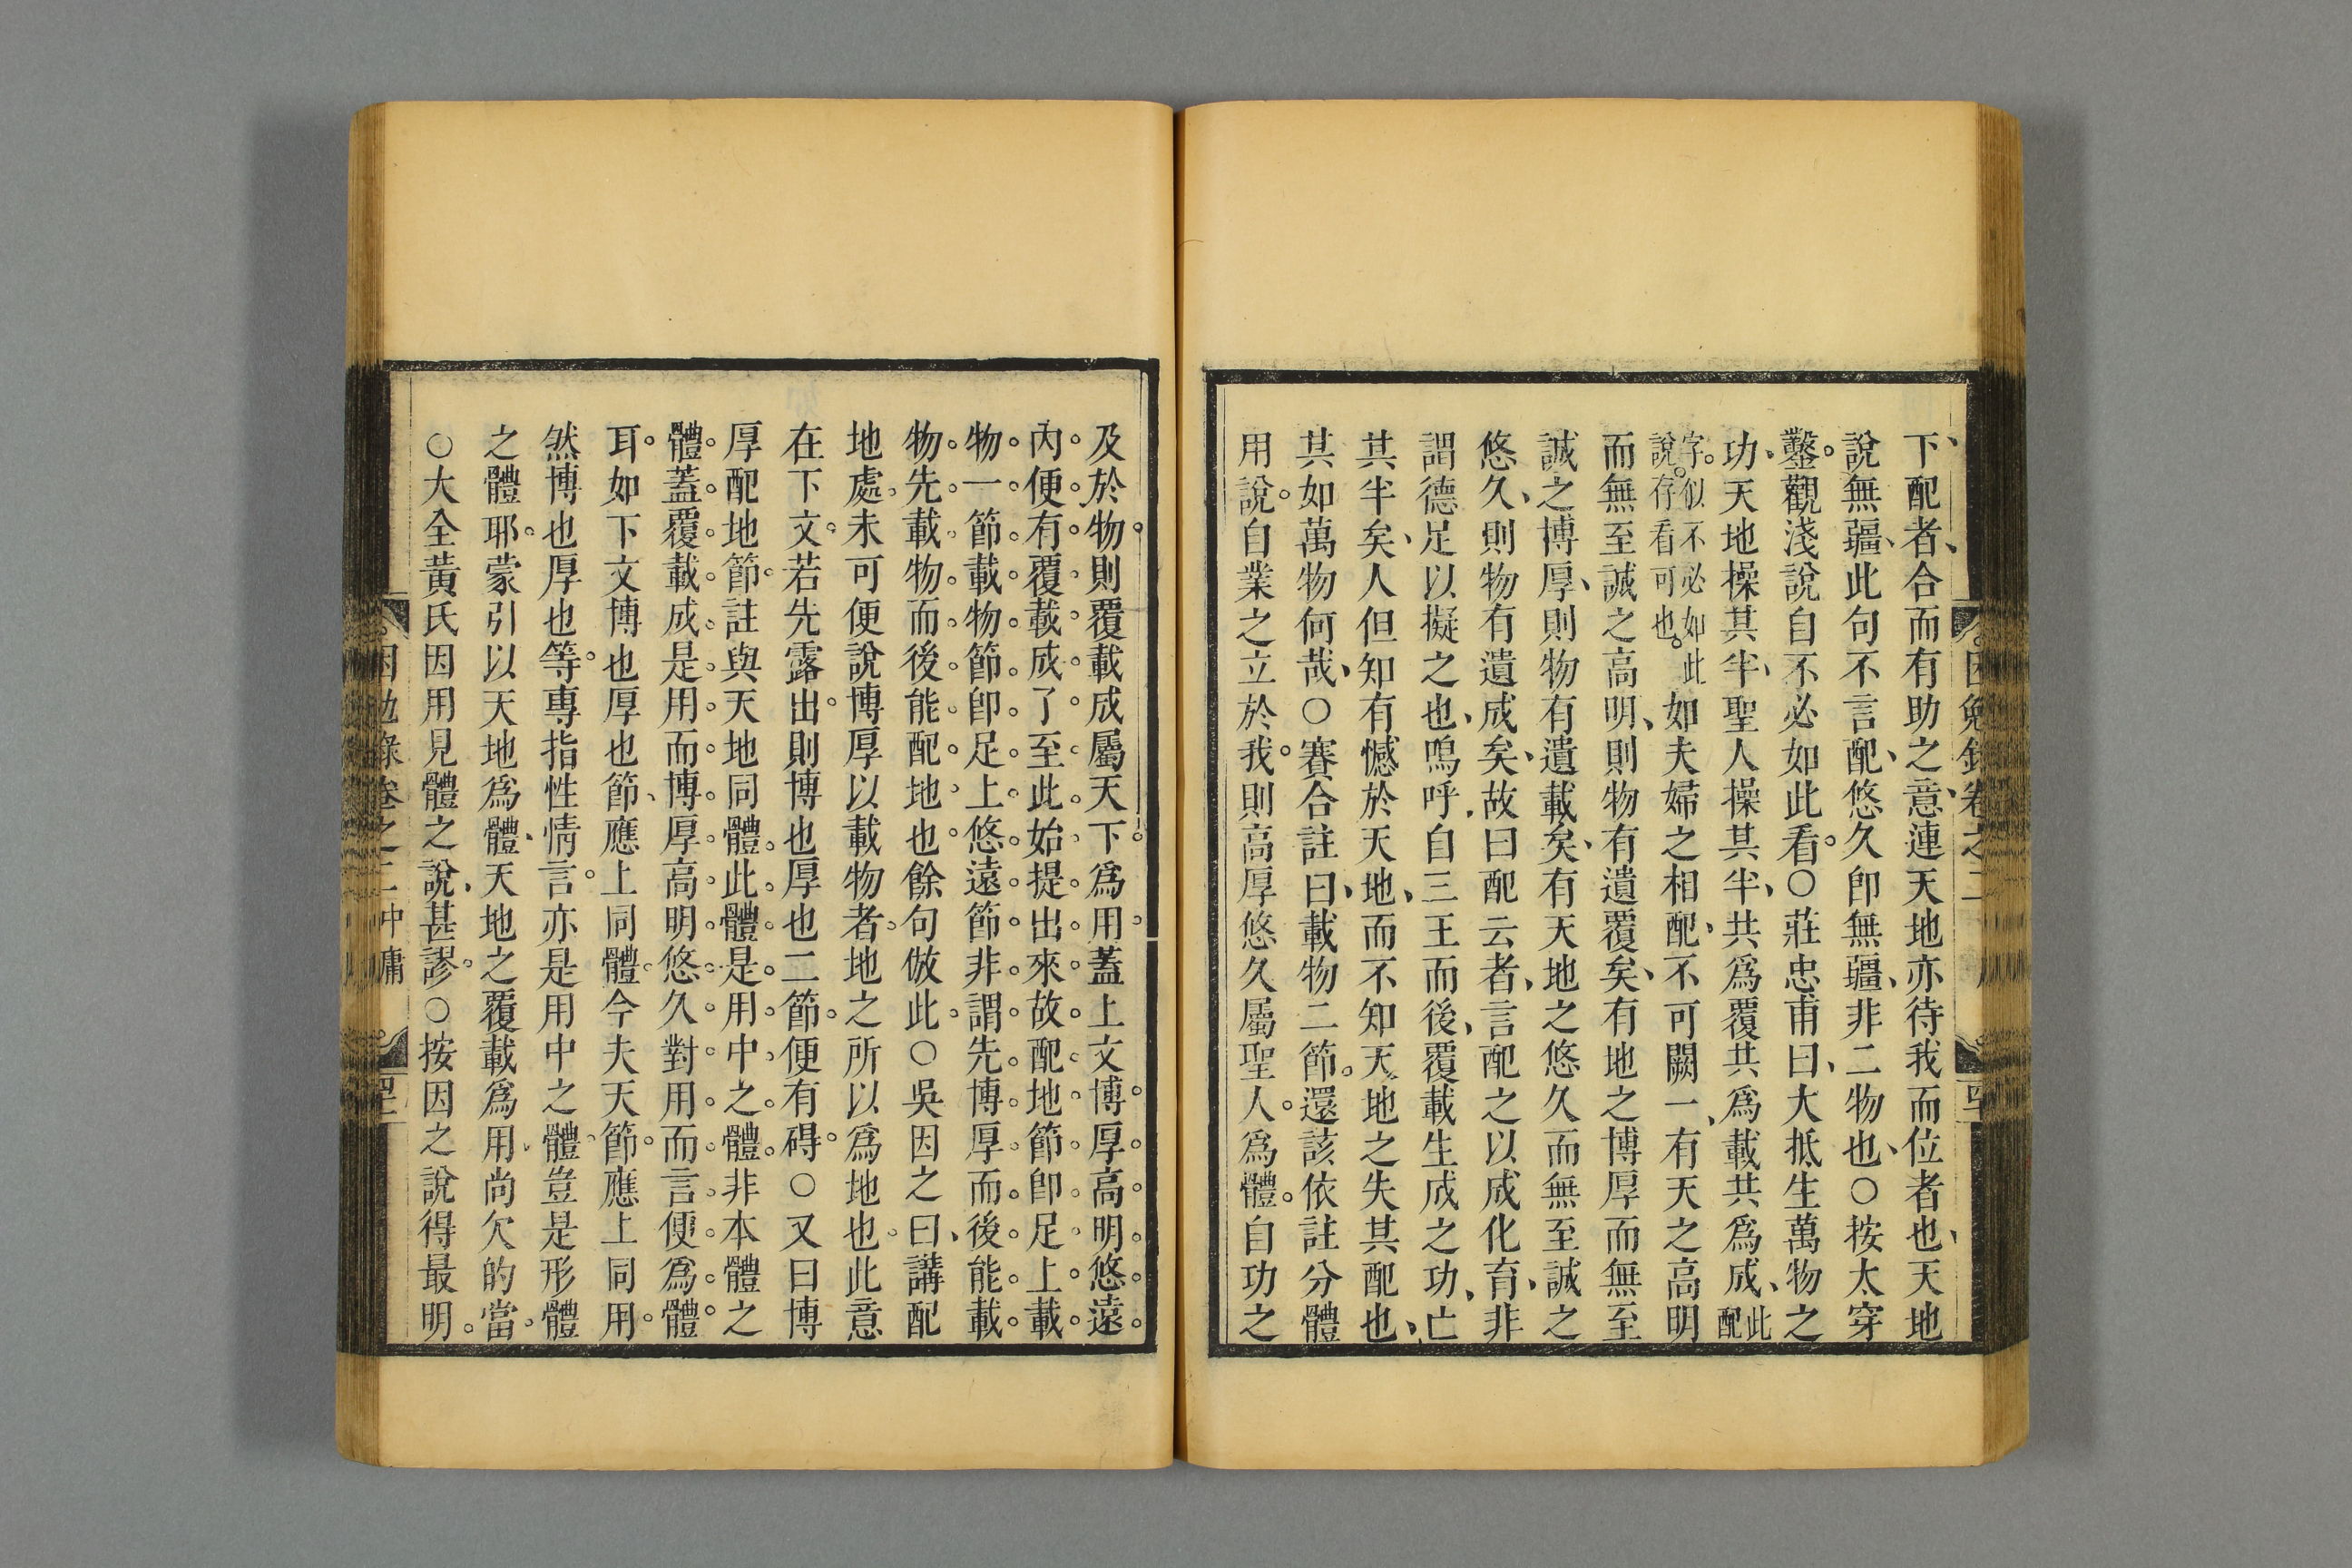 下配者合而有助之意連天地亦待我而位者也天地
說無疆此句不言配悠久卽無疆非二物也○按太穿
鑿觀淺說自不必如此看○莊忠甫曰大抵生萬物之
功天地操其半聖人操其半共爲覆共爲載共爲成此配
字似不必如此說存看可也如夫婦之相配不可闕一有天之高明
而無至誠之高明則物有遺覆矣有地之博厚而無至
誠之博厚則物有遺載矣有天地之悠久而無至誠之
悠久則物有遺成矣故曰配云者言配之以成化育非
謂德足以擬之也嗚呼自三王而後覆載生成之功亡
其半矣人但知有憾於天地而不知天地之失其配也
其如萬物何哉○賽合註曰載物二節還該依註分體
用說自業之立於我則高厚悠久屬聖人爲體自功之
及於物則覆載成屬天下爲用蓋上文博厚高明悠遠
內便有覆載成了至此始提出來故配地節卽足上載
物一節載物節卽足上悠遠節非謂先博厚而後能載
物先載物而後能配地也餘句倣此○吳因之曰講配
地處未可便說博厚以載物者地之所以爲地也此意
在下文若先露出則博也厚也二節便有碍○又曰博
厚配地節註與天地同體此體是用中之體非本體之
體蓋覆載成是用而博厚高明悠久對用而言便爲體
耳如下文博也厚也節應上同體今夫天節應上同用
然博也厚也等專指性情言亦是用中之體豈是形體
之體耶蒙引以天地爲體天地之覆載爲用尚欠的當
○大全黃氏因用見體之說甚謬○按因之說得最明
困勉錄卷之二 中庸